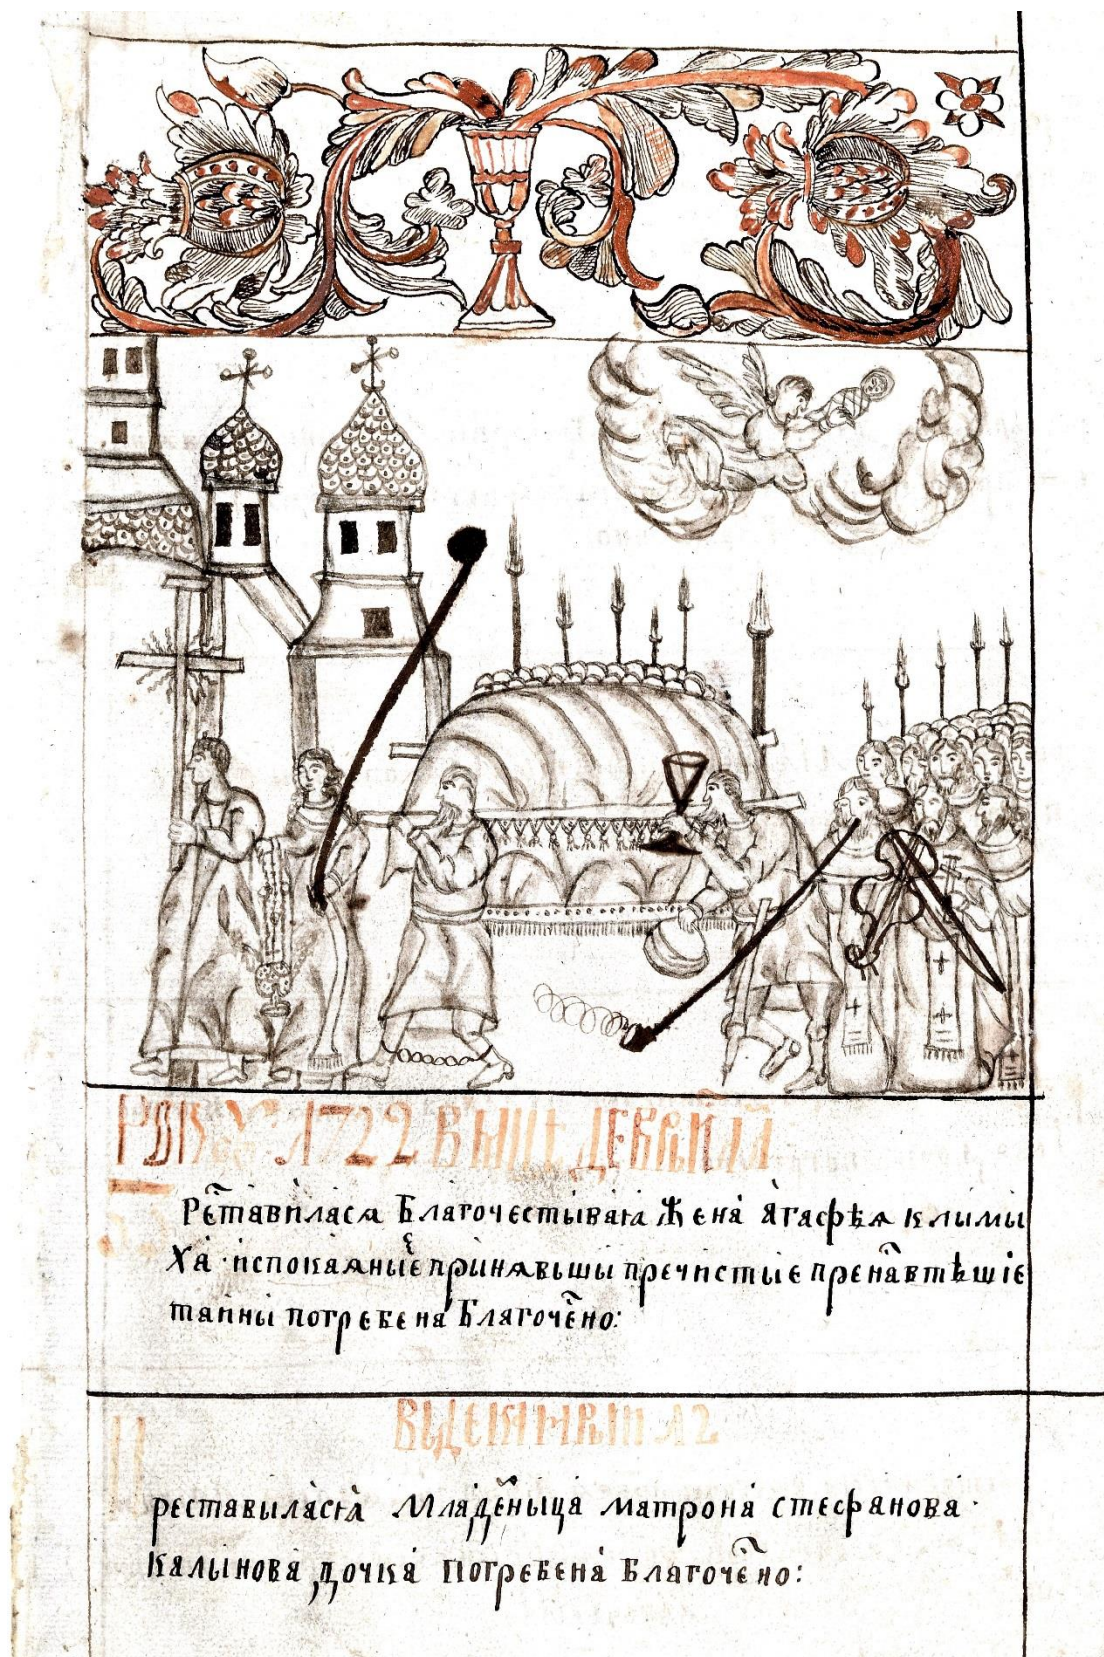 Року 1722 вмце девраи дл
Реставилася Благочестываꙗ Жена Агасфѣѧ климы
Ха испокаѧные принѧвьшы пречистые пренавтѣшіе
таины погребена Благочено:
в декамврии л2
Преставыласꙗ Младеныца матрона стесфанова
калынова дочка погребена Благочено: